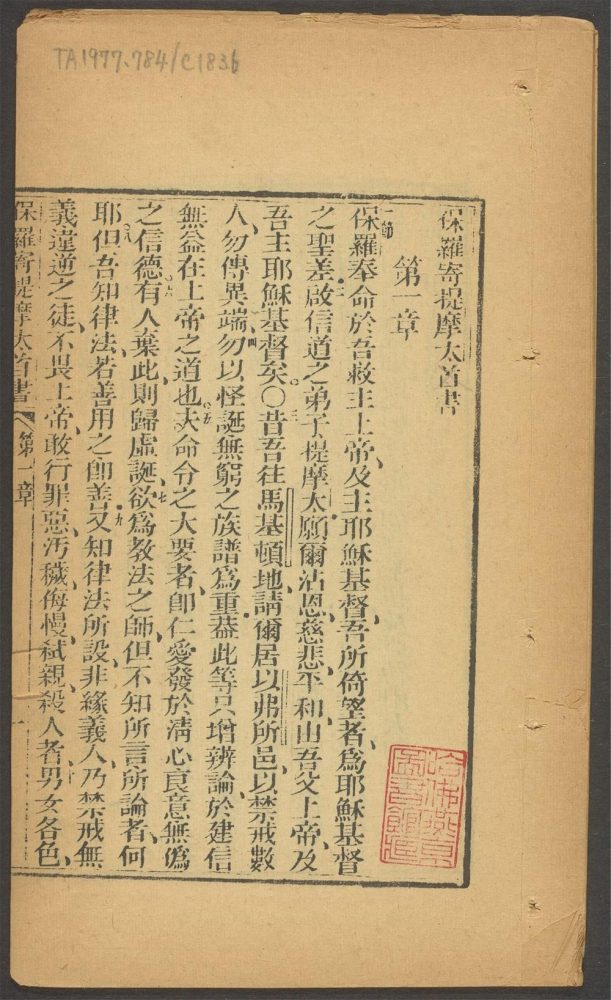 TA1977.784/C1836
保羅寄提摩太首書
第一章
一節保羅奉命於吾救主上帝及主耶穌基督、吾所倚望者、爲耶穌基督
之聖差、二啟信道之弟子提摩太、願爾沾恩慈悲平和、由吾父上帝、及
吾主耶穌基督矣。〇三昔吾往馬基頓地、請爾居以弗所邑、以禁戒數
人、勿傳異端、四勿以怪誕無窮之族譜爲重、葢此等只增辨論、於建信
無益、在上帝之道也。五夫命令之大要者、卽仁愛發於淸心良意、無僞
之信德。六有人棄此、則歸虛誕、七欲爲教法之師、但不知所言所論者何
耶。八但吾知律法、若善用之卽善、九又知律法所設、非緣義人、乃禁戒無
義違逆之徒、不畏上帝、敢行罪惡、汚穢侮慢、弑親殺人者、十男女各色、
保羅寄提摩太首書 第一章 一
哈佛燕京圖書館